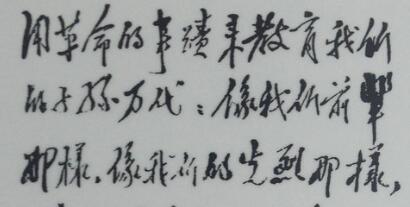 用革命的事蹟来教育我们
的子孫万代：像我们前輩
那様，像我们的先烈那様，